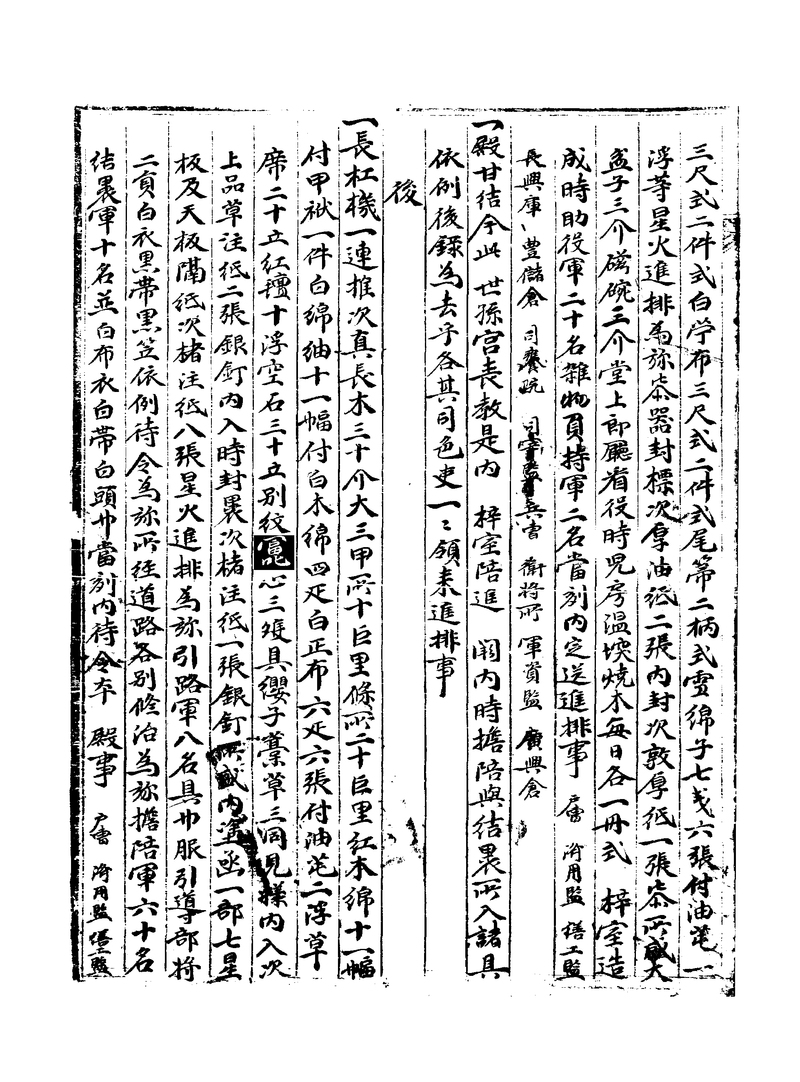 三尺式二件式白苧布三尺式二件式尾箒二柄式雪綿子七戔六張付油芚一
浮等星火進排為㫆茶器封標次厚油紙二張內封次敦厚紙一張茶所盛大
盆子三介磁碗三介堂上郎廳看役時兒房溫堗燒木每日各一丹式　梓室造
成時助役軍二十名雜物負持軍二名當刻內定送進排事　戶曹　濟用監　繕工監
長興庫　豊儲倉　司䆃寺　兵曹　衛將所　軍資監　廣興倉
一殿甘結今此　世孫宮喪敎是內　梓室陪進　闕內時擔陪與結褁所入諸具
依例後錄為去乎各其司色吏一一領來進排事
後
一長杠機一連推次真長木三十介大三甲所十巨里條所二十巨里紅木綿十一幅
付甲袱一件白綿紬十一幅付白木綿四疋白正布六疋六張付油芚二浮草
席二十立紅氊十浮空石三十立別紋心三雙具纓子藁草三同見樣內入次
上品草注紙二張銀釘內入時封褁次楮注紙一張銀釘所盛內塗函一部七星
板及天板隔紙次楮注紙八張星火進排為㫆引路軍八名具巾服引導部將
二負白衣黑帶黑笠依例待令為㫆所經道路各別修治為㫆擔陪軍六十名
結褁軍十名並白布衣白帶白頭巾當刻內待令本　殿事　戶曹　濟用監　繕工監